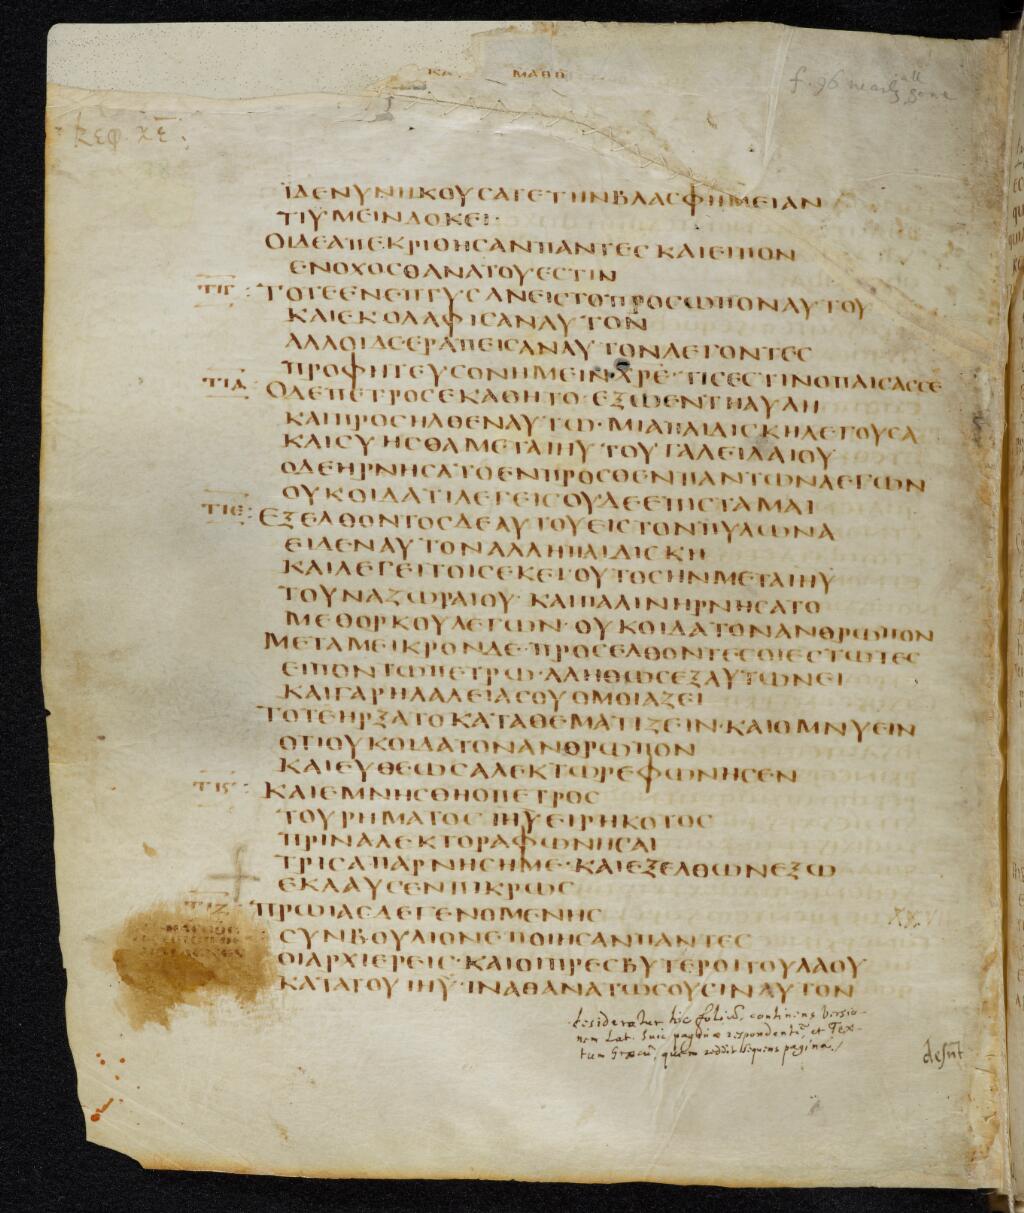 ΚΑ ΜΑΘΘ
f. 96 nearly all gone
ΚΕΦ ΞΕ
ΪΔΕΝΥΝΗΚΟΥСΑΤΕΤΗΝΒΛΑСΦΗΜΕΙΑΝ
ΤΙΥΜΕΙΝΔΟΚΕΙ·
ΟΙΔΕΑΠΕΚΡΙΘΗСΑΝΠΑΝΤΕС ΚΑΙΕΙΠΟΝ
ΕΝΟΧΟСΘΑΝΑΤΟΥΕСΤΙΝ
ΤΙΓ : ΤΟΤΕΕΝΕΠΤΥСΑΝΕΙСΤΟΠΡΟСΩΠΟΝΑΥΤΟΥ
ΚΑΙΕΚΟΛΑΦΙСΑΝΑΥΤΟΝ
ΑΛΛΟΙΔΕΕΡΑΠΕΙСΑΝΑΥΤΟΝΛΕΓΟΝΤΕС
ΠΡΟΦΗΤΕΥСΟΝΗΜΕΙΝΧΡΕ·ΤΙСΕСΤΙΝΟΠΑΙСΑССΕ
ΤΙΔ : ΟΔΕΠΕΤΡΟСΕΚΑΘΗΤΟ·ΕΞΩΕΝΤΗΑΥΛΗ
ΚΑΙΠΡΟСΗΛΘΕΝΑΥΤΩ·ΜΙΑΠΑΙΔΙСΚΗΛΕΓΟΥСΑ
ΚΑΙСΥΗСΘΑΜΕΤΑΙΗΥ ΤΟΥ ΓΑΛΕΙΛΑΙΟΥ
ΟΔΕΗΡΝΗСΑΤΟΕΝΠΡΟСΘΕΝΠΑΝΤΩΝΛΕΓΩΝ
ΟΥΚΟΙΔΑΤΙΛΕΓΕΙСΟΥΔΕΕΠΙСΤΑΜΑΙ
ΤΙΕ : ΕΞΕΛΘΟΝΤΟСΔΕΑΥΤΟΥΕΙСΤΟΝΠΥΛΩΝΑ
ΕΙΔΕΝΑΥΤΟΝΑΛΛΗΠΑΙΔΙСΚΗ
ΚΑΙΛΕΓΕΙΤΟΙСΕΚΕΙ ΟΥΤΟСΗΝΜΕΤΑΙΗΥ
ΤΟΥΝΑΖΩΡΑΙΟΥ· ΚΑΙΠΑΛΙΝΗΡΝΗСΑΤΟ
ΜΕΘΟΡΚΟΥΛΕΓΩΝ·ΟΥΚΟΙΔΑΤΟΝΑΝΘΡΩΠΟΝ
ΜΕΤΑΜΕΙΚΡΟΝΔΕ·ΠΡΟСΕΛΘΟΝΤΕСΟΙΕСΤΩΤΕС
ΕΙΠΟΝΤΩΠΕΤΡΩ·ΑΛΗΘΩСΕΞΑΥΤΩΝΕΙ
ΚΑΙΓΑΡΗΛΑΛΕΙΑСΟΥΟΜΟΙΑΖΕΙ
ΤΟΤΕΗΡΞΑΤΟΚΑΤΑΘΕΜΑΤΙΖΕΙΝ·ΚΑΙΟΜΝΥΕΙΝ
ΟΤΙΟΥΚΟΙΔΑΤΟΝΑΝΘΡΩΠΟΝ
ΚΑΙΕΥΘΕΩСΑΛΕΚΤΩΡΕΦΩΝΗСΕΝ
ΤΙϚ : ΚΑΙΕΜΝΗСΘΗΟΠΕΤΡΟС
ΤΟΥΡΗΜΑΤΟС ΙΗΥΕΙΡΗΚΟΤΟС
ΠΡΙΝΑΛΕΚΤΟΡΑΦΩΝΗСΑΙ
ΤΡΙСΑΠΑΡΝΗСΗΜΕ·ΚΑΙΕΞΕΛΘΩΝΕΞΩ
ΕΚΛΑΥСΕΝΠΙΚΡΩС
ΤΙΖ : ΠΡΩΙΑСΔΕΓΕΝΟΜΕΝΗС XXVII
СΥΝΒΟΥΛΙΟΝΕΠΟΙΗСΑΝΠΑΝΤΕС
ΟΙΑΡΧΙΕΡΕΙС·ΚΑΙΟΙΠΡΕСΒΥΤΕΡΟΙΤΟΥΛΑΟΥ
ΚΑΤΑΤΟΥΙΗΥ·ΙΝΑΘΑΝΑΤΩСΟΥСΙΝΑΥΤΟΝ
desideratur hic foliũ, continens versio-
nem Lat. huic paginæ respondentẽ, et Tex-
tum Græcũ, quem reddit sequens pagina.
desũt